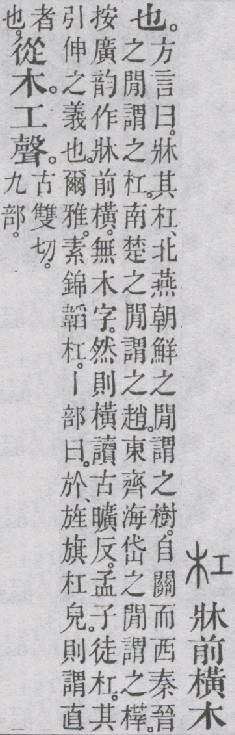 杠 牀前橫木
也。方言曰。牀其杠、北燕朝鮮之閒謂之樹。自關而西秦晉
之閒謂之杠。南楚之閒謂之趙。東齊海岱之閒謂之樺。
按廣韵作牀前橫。無木字。然則橫讀古曠反。孟子徒杠。其
引伸之義也。爾雅。素錦韜杠。丨部曰。於、旌旗杠皃。則謂直
者也。從木。工聲。古雙切。九部。